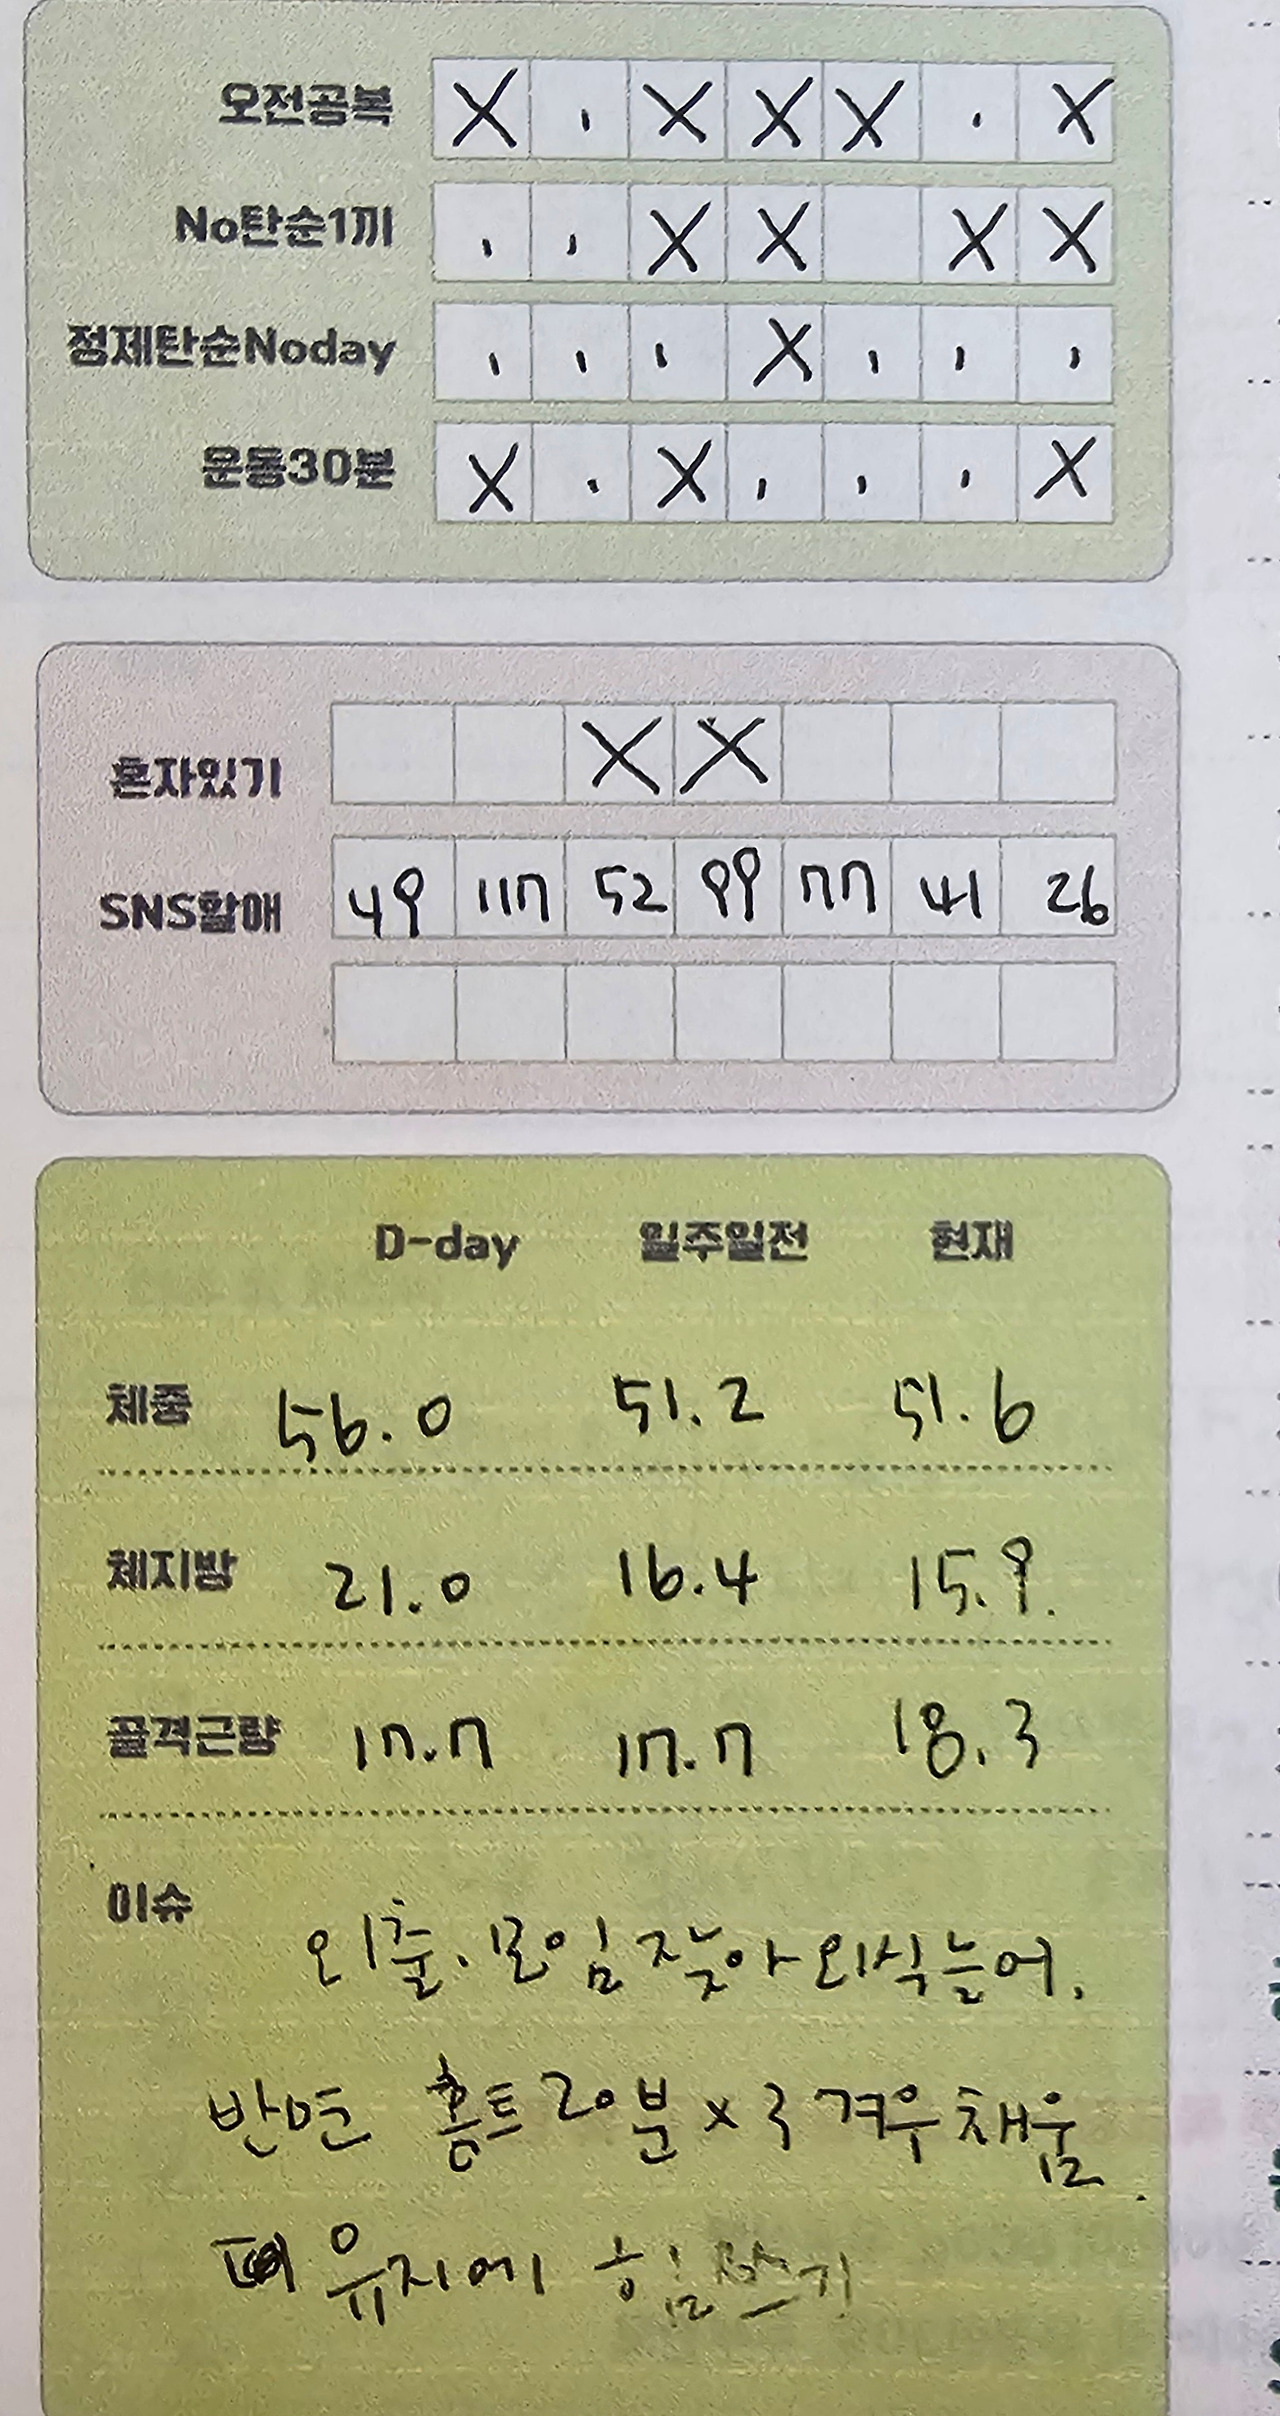 오전공복 X , X X X . X
No탄순1끼 , , X X X X
정제탄순Noday , , , X , , ,
운동30분 X . X , , , X
혼자있기 X X
SNS할애 49 117 52 99 77 41 26
D-day 일주일전 현재
체중 56.0 51.2 51.6
체지방 21.0 16.4 15.9.
골격근량 17.7 17.7 18.3
이슈
외출.모임 잦아 외식 늘어.
반면 홈트 20분 x 3 겨우 채움.
유지에 힘쓰기